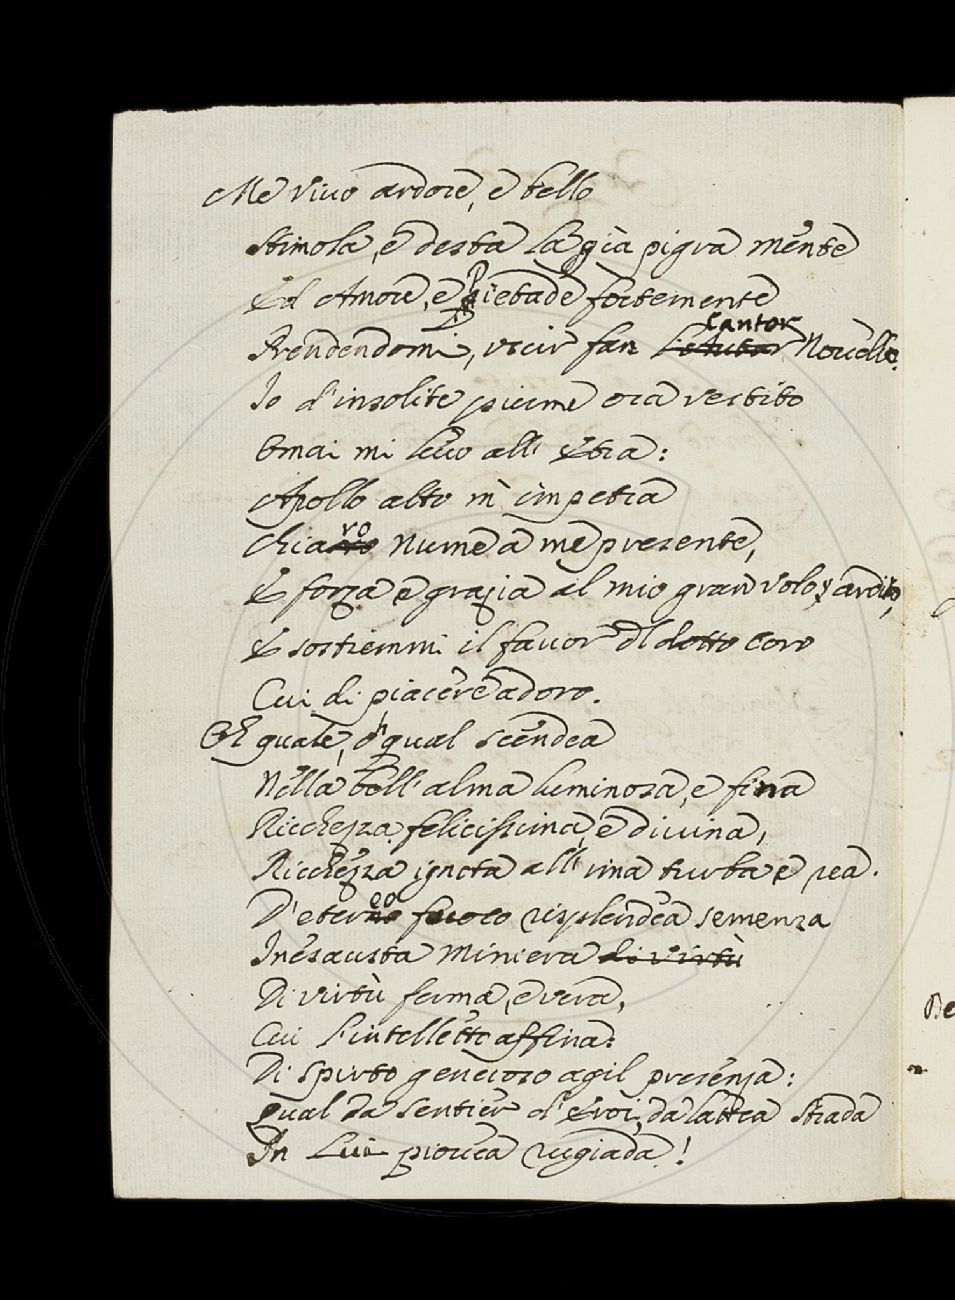 Me vivo ardore, e bello
Stimola, e desta la già pigra mente
Ed Amore, e Pietade fortemente
Prendendomi, uscir fan Cantor Novello.
Io d'insolite piume ora vestito
Omai mi levo all' Etra:
Apollo alto m' impetra
Chiaro Nume a me presente,
E forza e grazia al mio gran volo, ardito,
E sostiemmi il favor dl dotto coro
Cui di piacere adoro.
Oh quale, oh qual scendea
Nella bell' alma luminosa, e fina
Ricchezza felicissima, e divina,
Ricchezza ignota all' ima turba e rea.
D'eterno fuoco risplendea semenza
Inesausta Miniera di virtù
Di virtù ferma, e vera,
Cui l'intelletto affina:
Di spirto generoso agil presenza:
Qual da sentier d'Eroi, da lattea strada
In Lui piovea rugiada!
Be